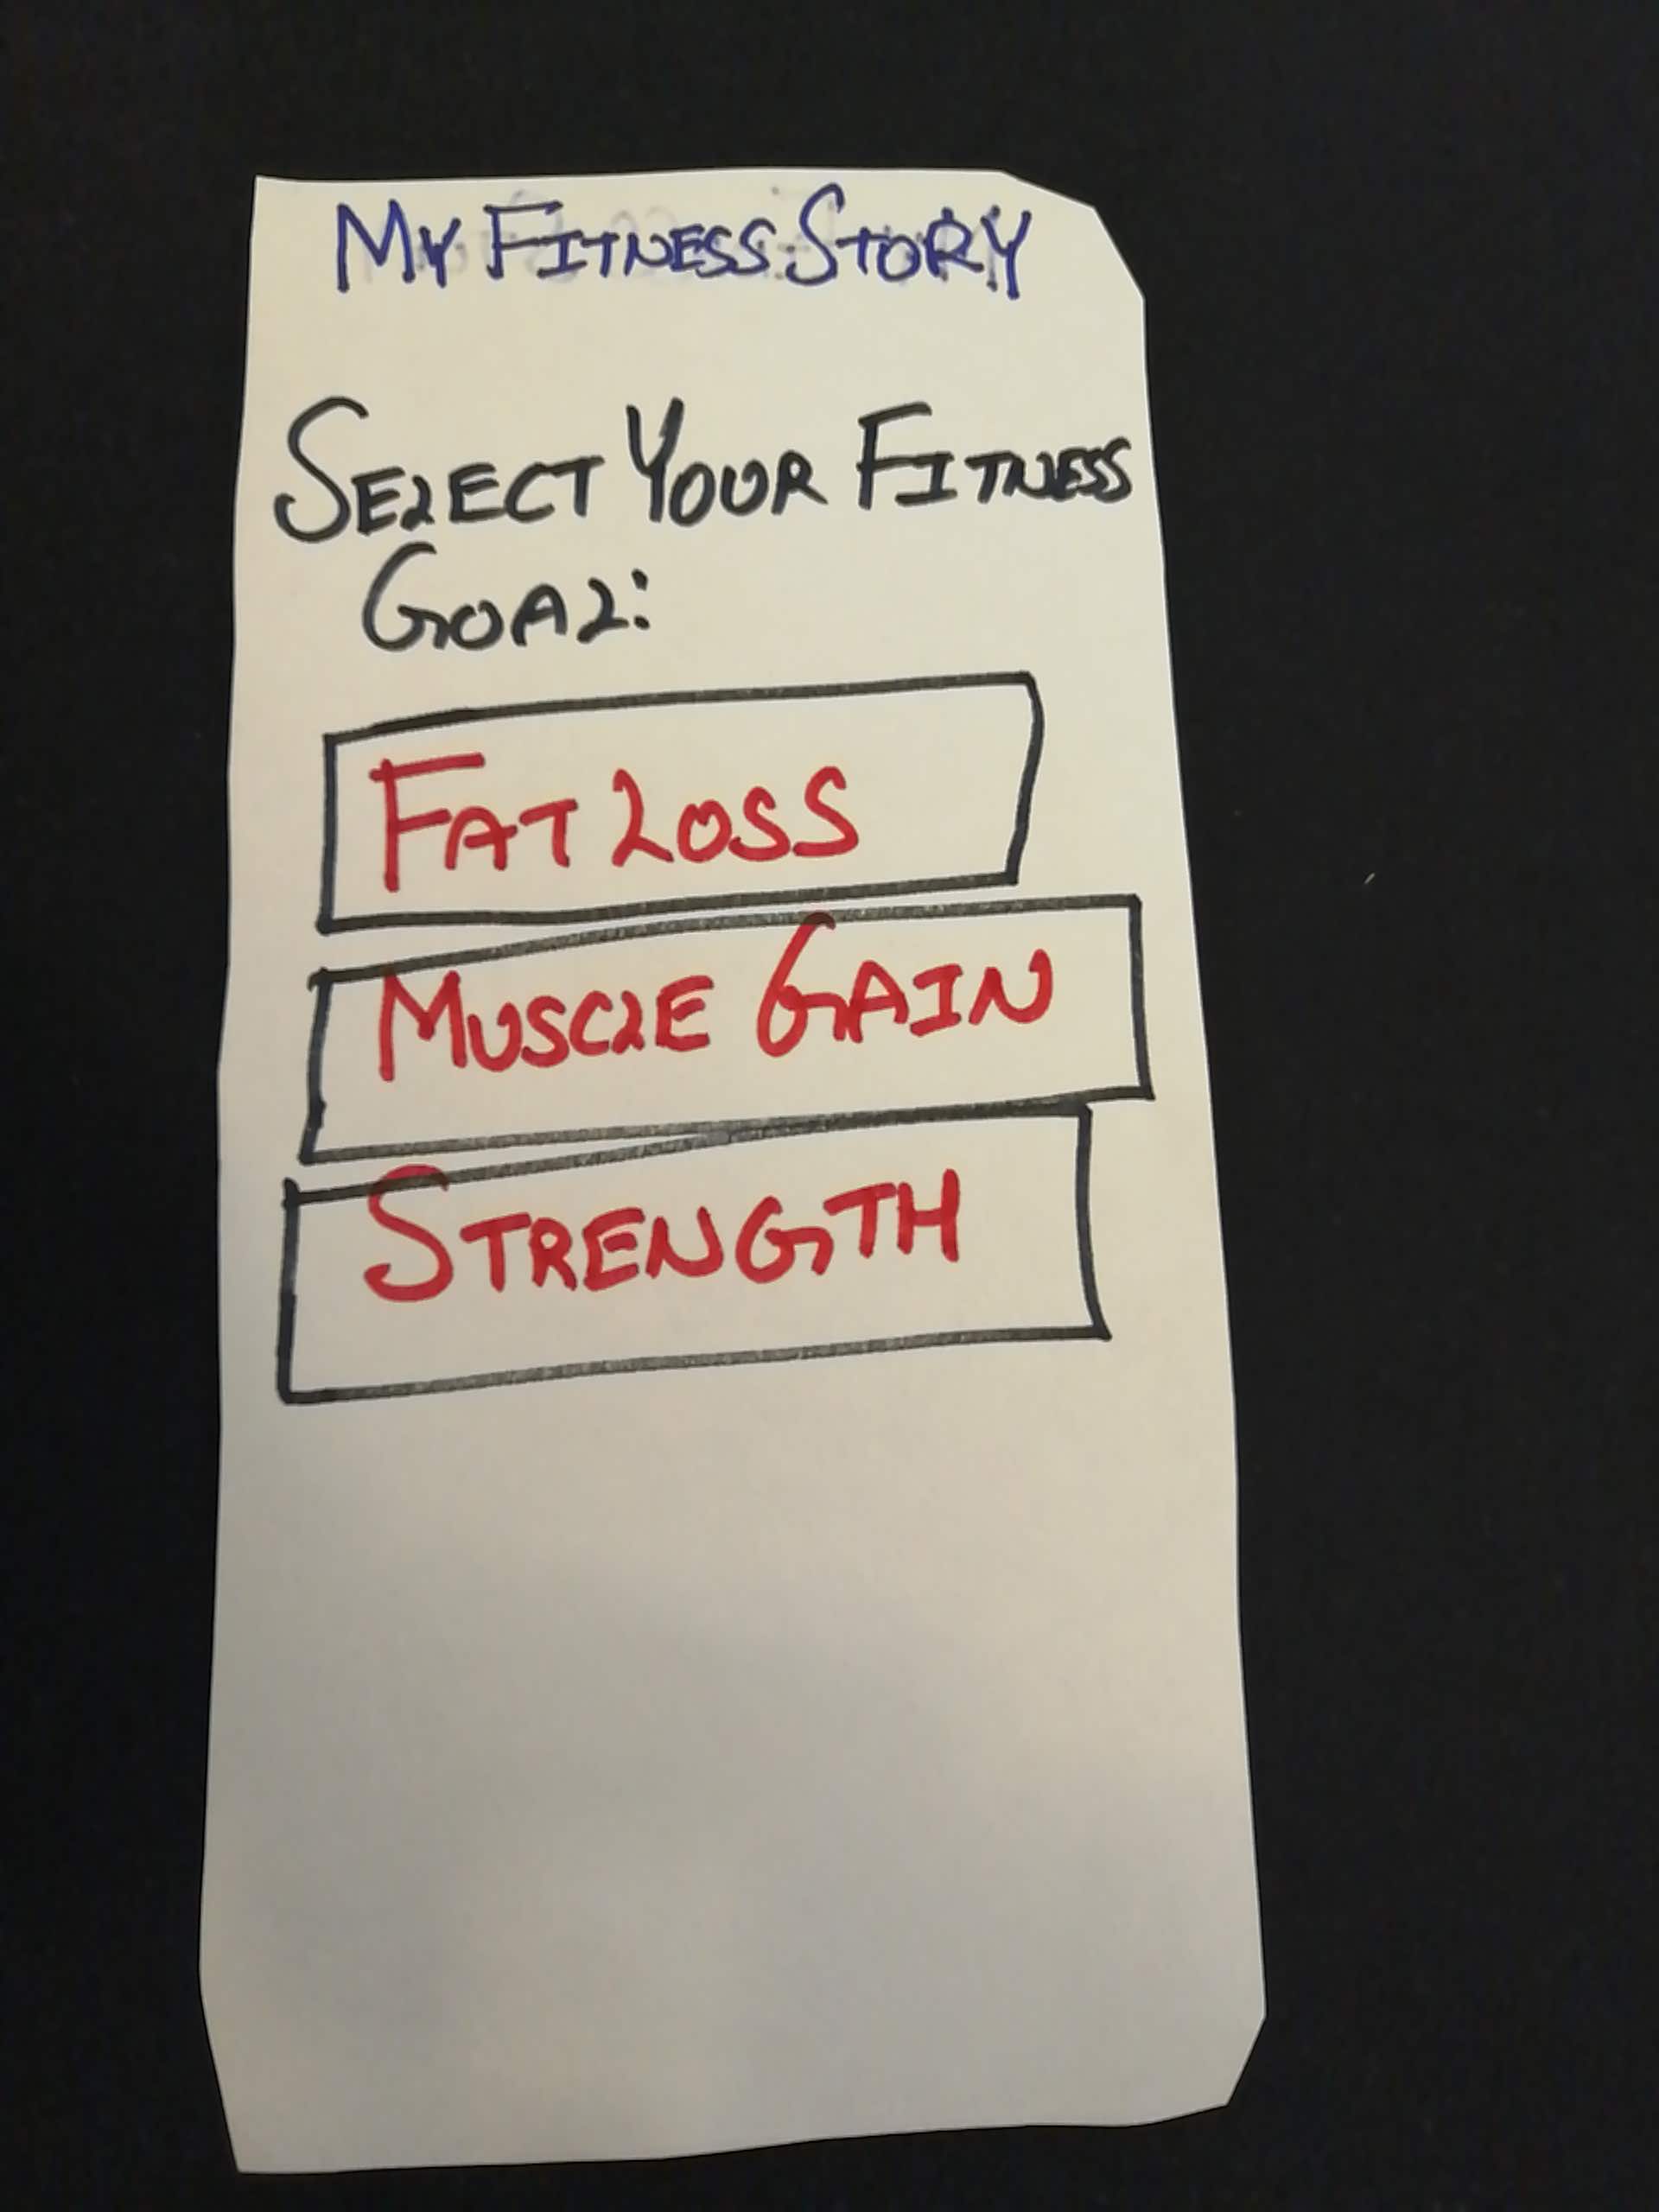 MY FITNESS STORY
SELECT YOUR FITNESS
GOAL:
FAT LOSS
MUSCLE GAIN
STRENGTH